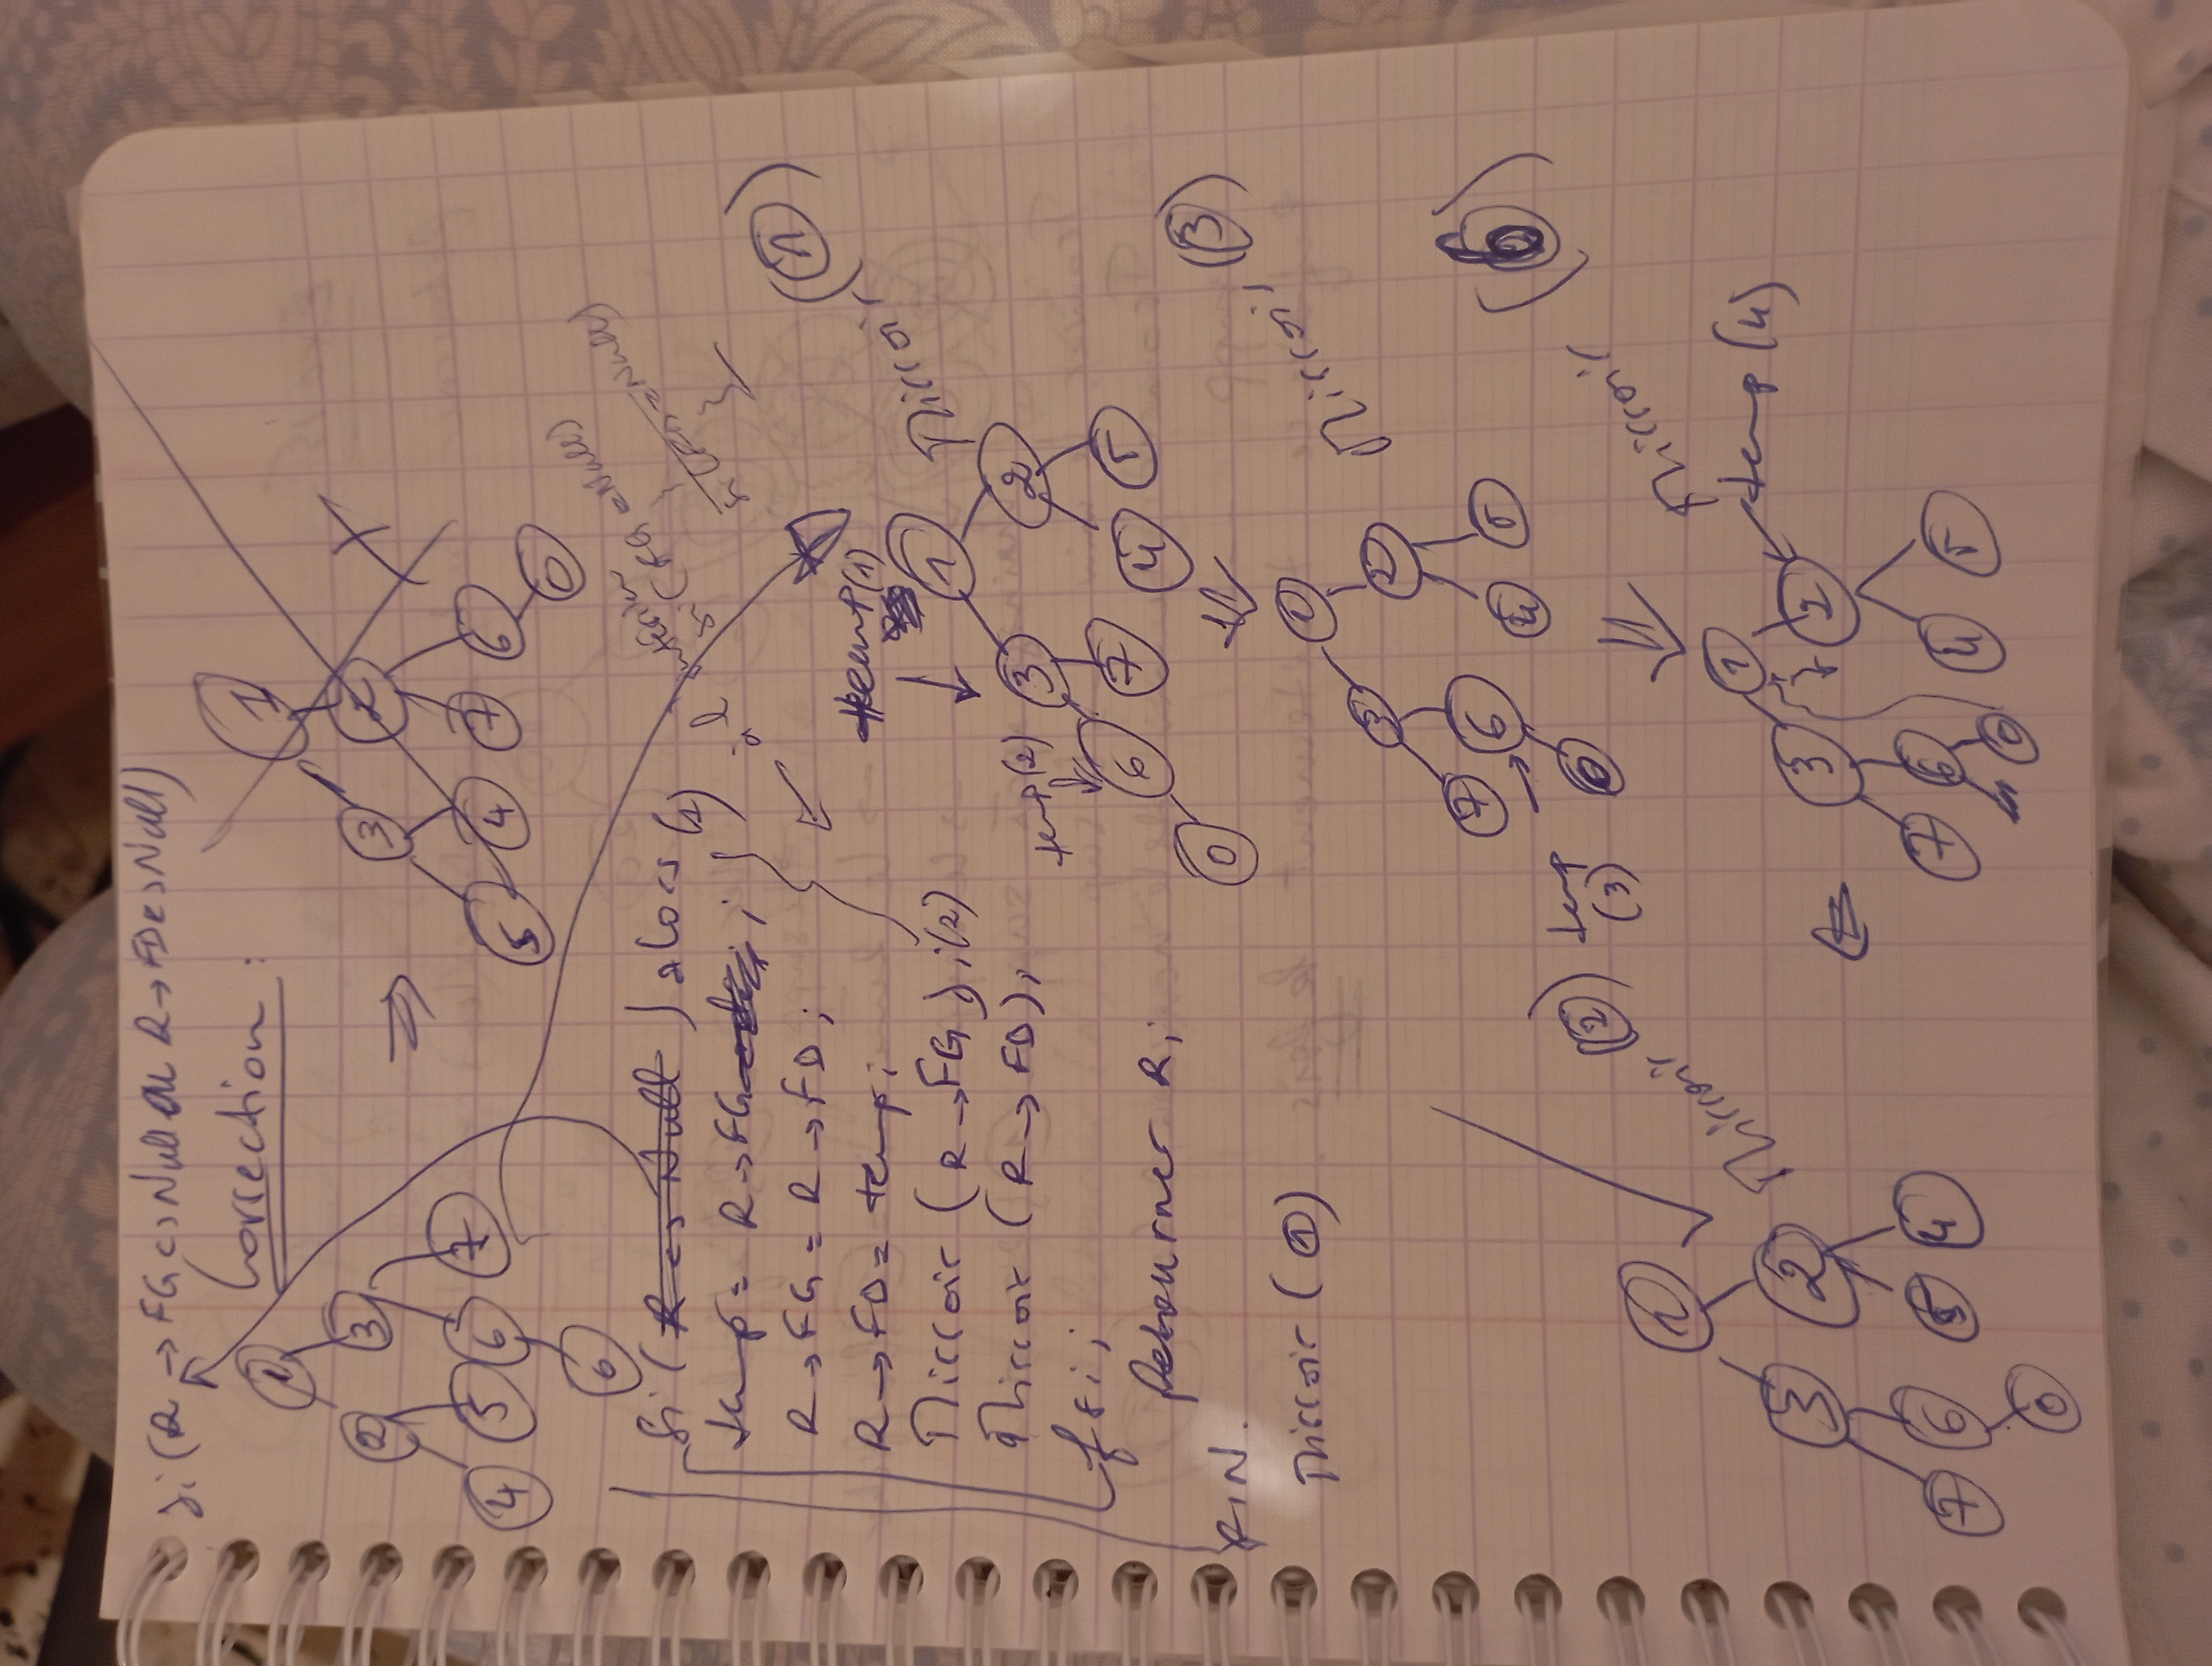 si (R → FG <> Null ou R → FD <> Null)
Correction :
1
2 3
4 5 6 7
0
⇒
1
3 2
5 4 7 6
0
X
Si (R <> Null) alors (1)
temp = R → FG ;
R → FG = R → FD ;
R → FD = temp ;
Mirroir (R → FG) ; (2)
Mirroir (R → FD) ;
fsi ;
Retourner R ;
FIN.
Mirroir (1)
à l
si (FG = Null)
temp (1)
Mirroir (1)
1
3 2
temp (2)
6 7 4 5
0
Mirroir (3)
1
3 2
7 6 4 5
temp (3)
0
Mirroir (6)
temp (4)
1
3 2
7 6 4 5
0
Mirroir (2)
1
3 2
7 6 5 4
0